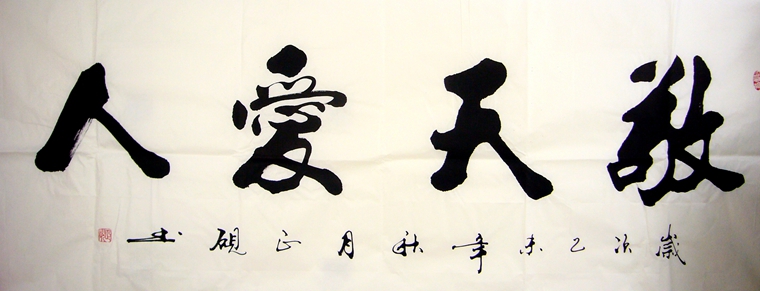 敬天愛人
歲次己未年秋月正硯書